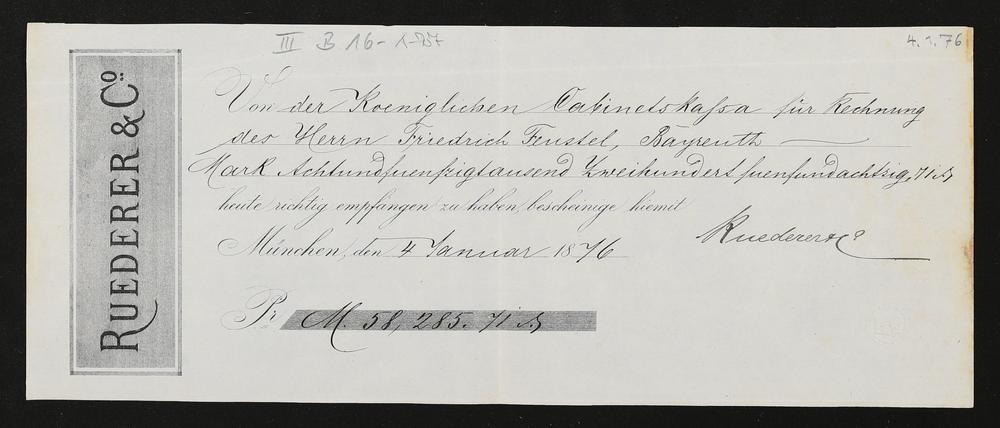 III B 16-1-87
4.1.76
RUEDERER & Cº.
Von der Koeniglichen Cabinetskassa für Rechnung
des Herrn Friedrich Feustel, Bayreuth
Mark Achtundfuenfzigtausend Zweihundertfuenfundachtzig, 71 ₰
heute richtig empfangen zu haben, bescheinige hiemit
München, den 4 Januar 1876
Ruederer & Cº
Pr M. 58,285. 71 ₰